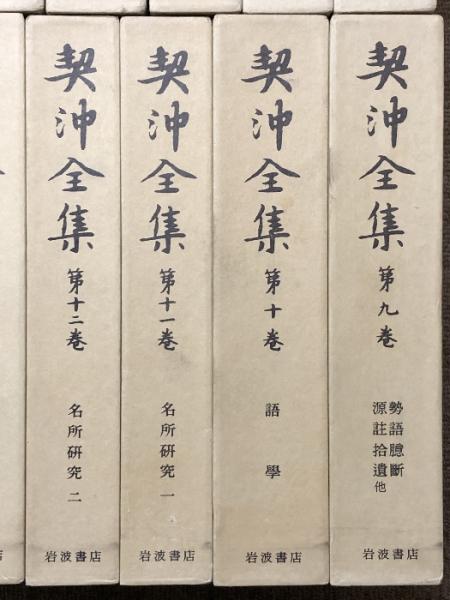 契沖全集
第九巻
勢語臆斷
源註拾遺他
岩波書店
契沖全集
第十巻
語學
岩波書店
契沖全集
第十一巻
名所研究 一
岩波書店
契沖全集
第十二巻
名所研究 二
岩波書店
店